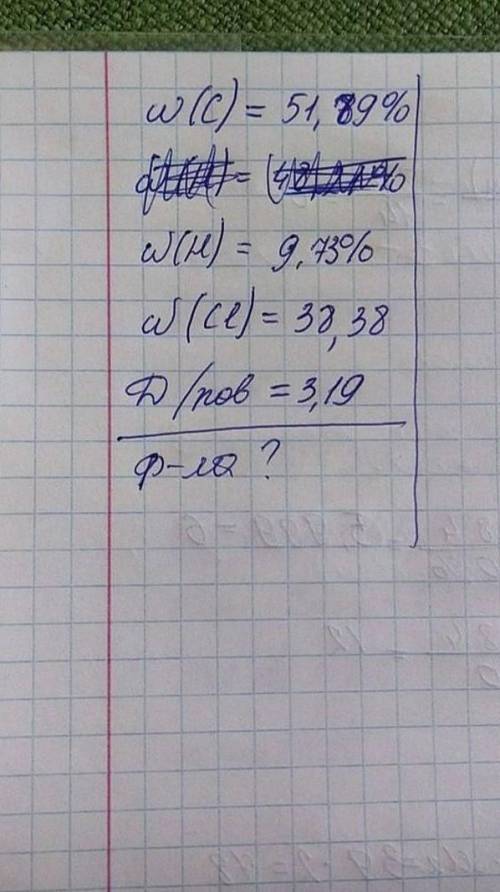 w(C) = 51,89%
w(H) = 9,73%
w(Cl) = 38,38
D/пов = 3,19
Ф-ла ?